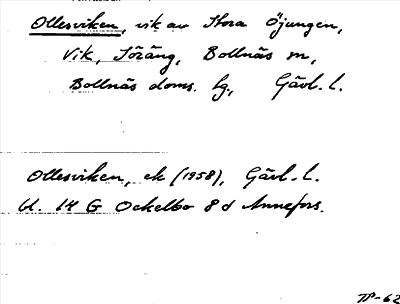 Ollesviken, vik av Stora Öjungen,
Vik, Söräng, Bollnäs sn,
Bollnäs doms. lg., Gävl. l.
Ollesviken, ek (1958), Gävl. L.
Kl. 14 G Ockelbo 8 d Annefors.
-62